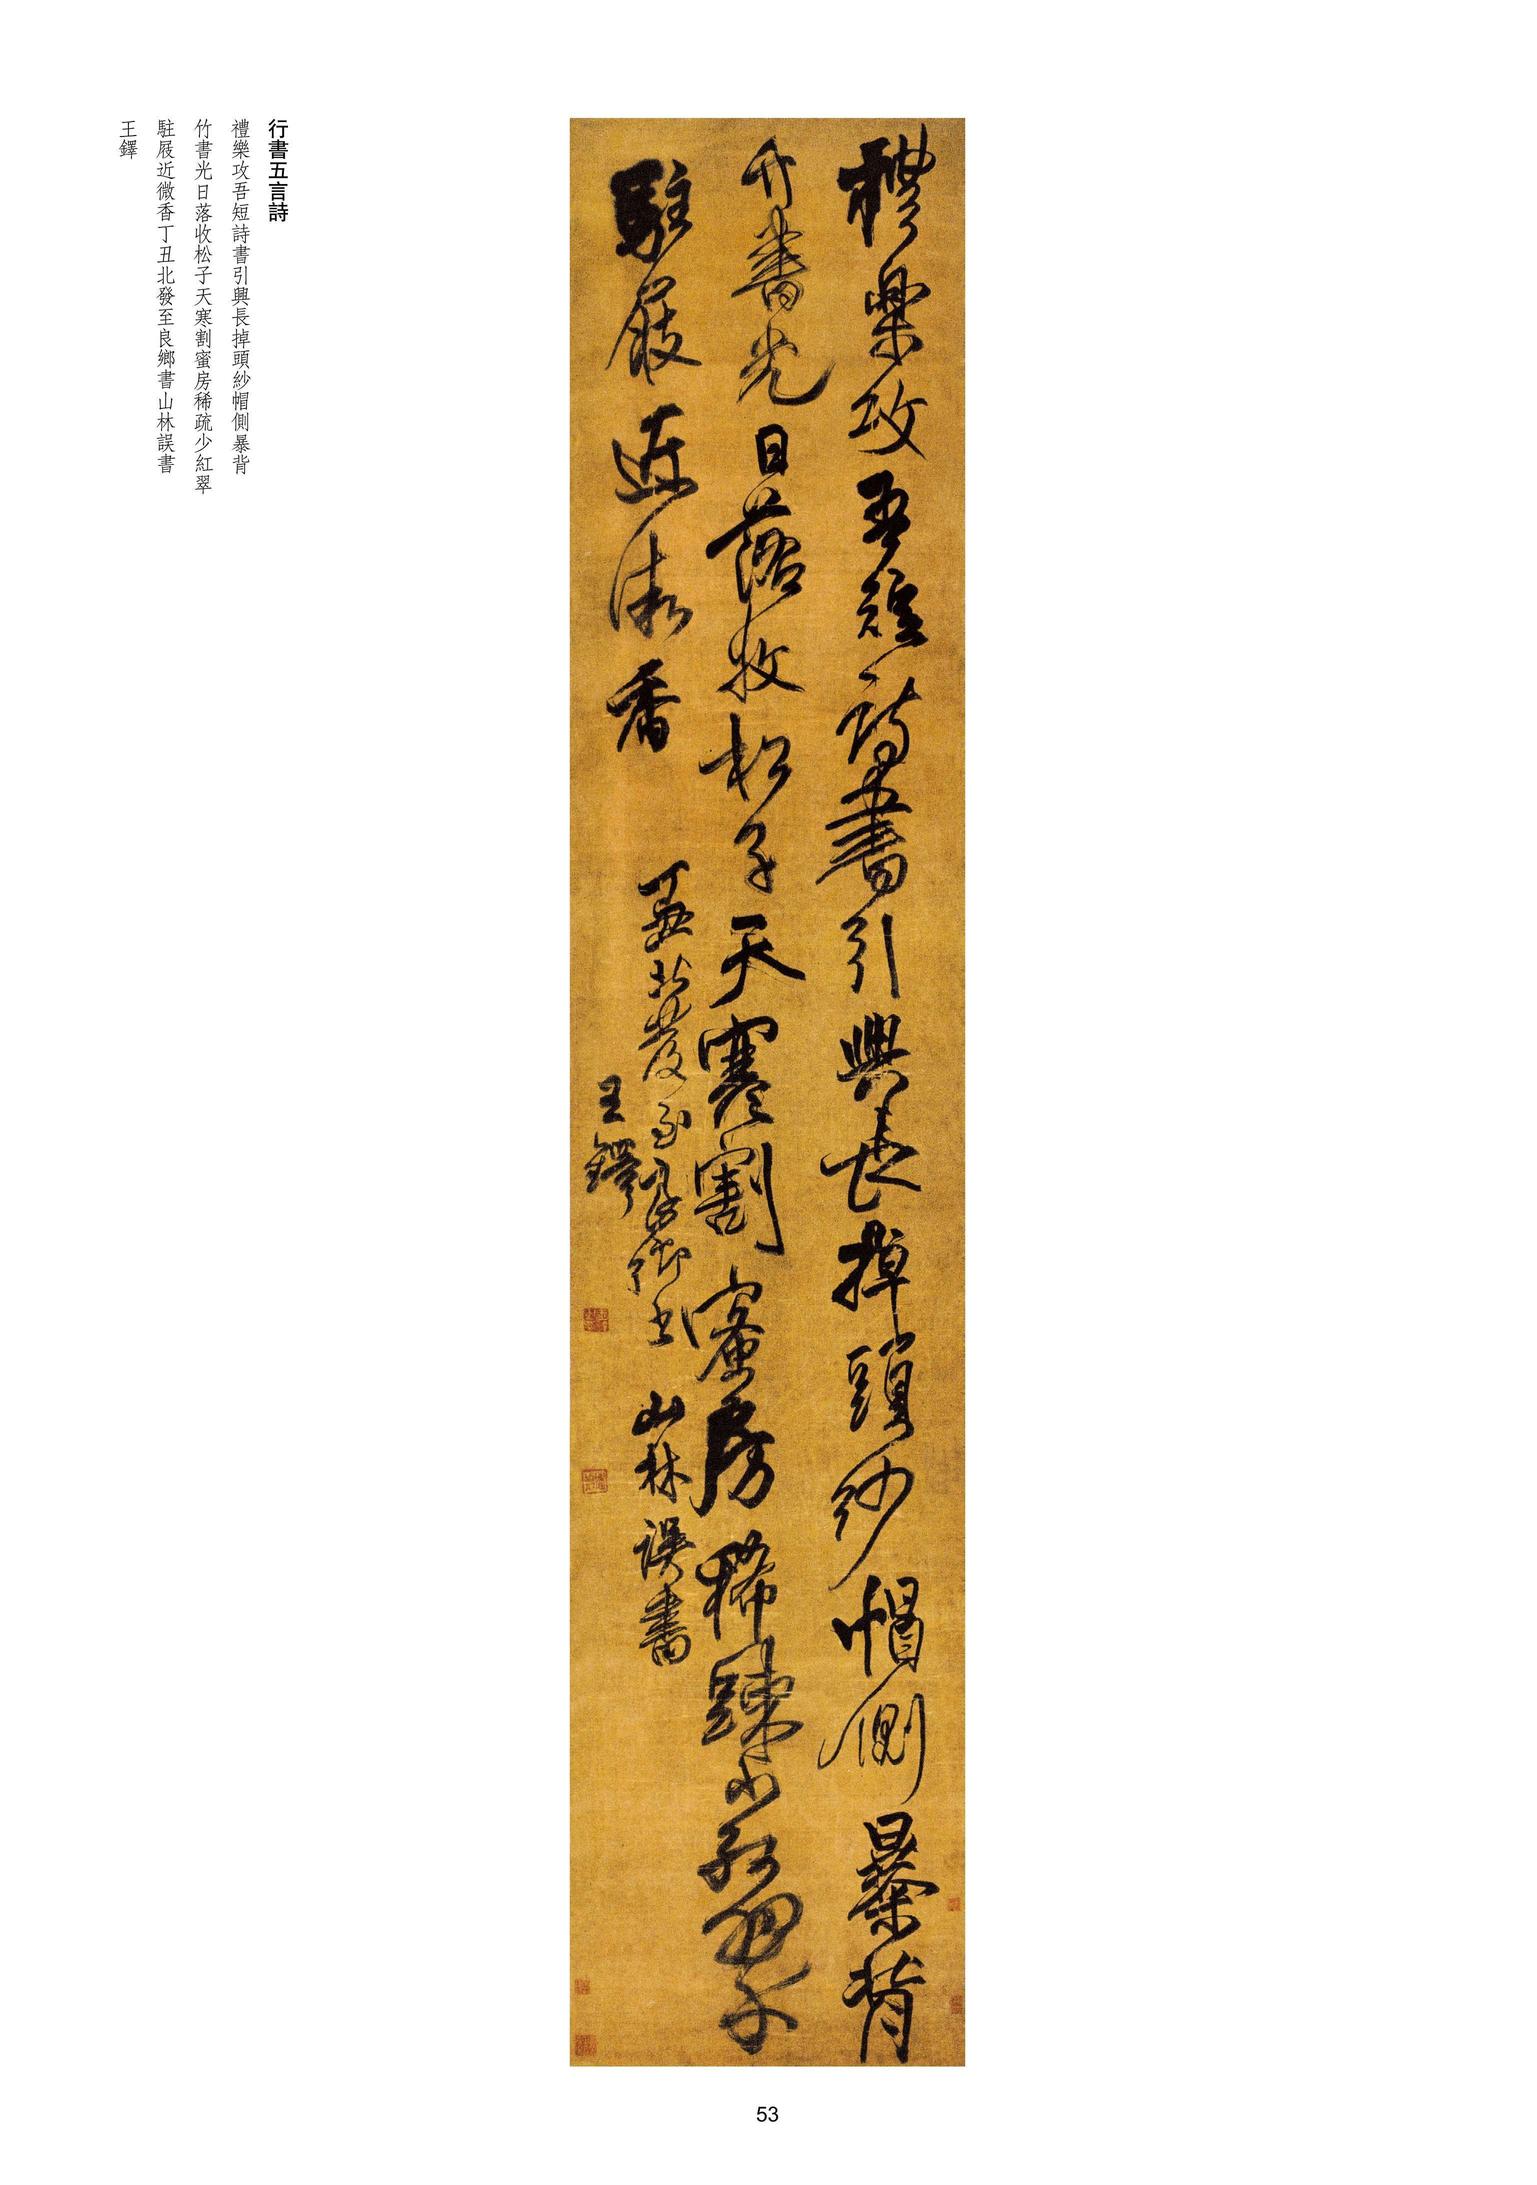 禮樂攻吾短詩書引興長掉頭紗帽側暴背
竹書光日落收松子天寒割蜜房稀疏少紅翠
駐屐近微香
丁丑北發至良鄉書山林誤書
王鐸
行書五言詩
禮樂攻吾短詩書引興長掉頭紗帽側暴背
竹書光日落收松子天寒割蜜房稀疏少紅翠
駐屐近微香丁丑北發至良鄉書山林誤書
王鐸
53